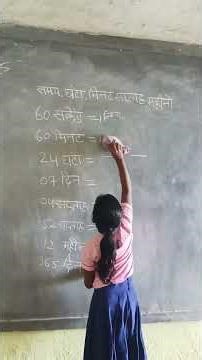 समय घंटा, मिनट सप्ताह महीनो
60 सकेंड = 1 मिनट
60 मिनट =
24 घंटा =
07 दिन =
04 सप्ताह =
52 सप्ताह =
12 महीन
365 दिन